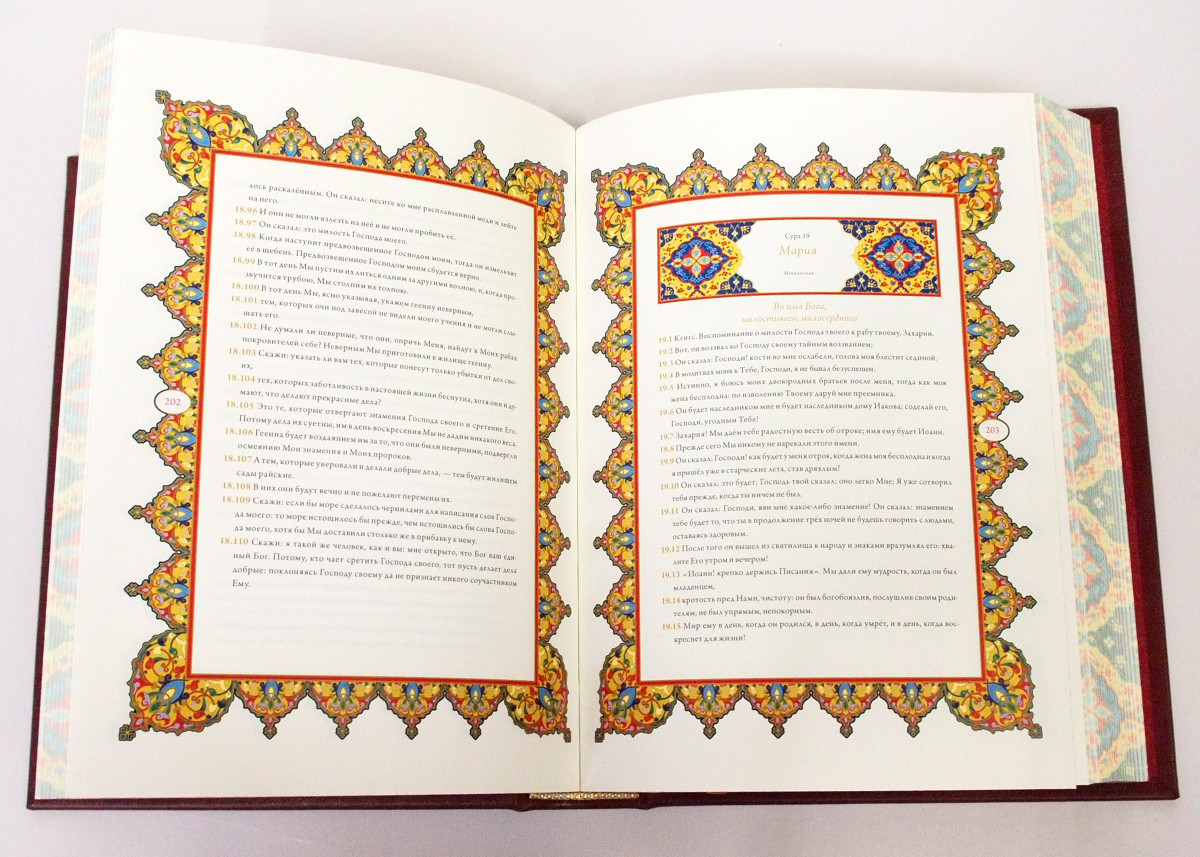 лось раскалённым. Он сказал: несите ко мне расплавленной меди и лейте
на него.
18.96 И они не могли взлезть на неё и не могли пробить её.
18.97 Он сказал: это милость Господа моего.
18.98 Когда наступит предвозвещенное Господом моим, тогда он измельчит
её в щебень. Предвозвещенное Господом моим сбудется верно.
18.99 В тот день Мы пустим их литься одним за другими волною, и, когда про-
звучится трубою, Мы столпим их толпою.
18.100 В тот день Мы, ясно указывая, укажем геенну неверным,
18.101 тем, которых очи под завесой не видели моего учения и не могли слу-
шать его.
18.102 Не думали ли неверные, что они, опричь Меня, найдут в Моих рабах
покровителей себе? Неверным Мы приготовили в жилище геенну.
18.103 Скажи: указать ли вам тех, которые понесут только убытки от дел сво-
их,
18.104 тех, которых заботливость в настоящей жизни беспутна, хотя они и ду-
мают, что делают прекрасные дела?
18.105 Это те, которые отвергают знамения Господа своего и сретение Его.
Потому дела их суетны, им в день воскресения Мы не дадим никакого веса.
18.106 Геенна будет воздаянием им за то, что они были неверными, подвергли
осмеянию Мои знамения и Моих пророков.
18.107 А тем, которые уверовали и делали добрые дела, — тем будут жилищем
сады райские.
18.108 В них они будут вечно и не пожелают перемены их.
18.109 Скажи: если бы море сделалось чернилами для написания слов Госпо-
да моего: то море истощилось бы прежде, чем истощились бы слова Госпо-
да моего, хотя бы Мы доставили столько же в прибавку к нему.
18.110 Скажи: я такой же человек, как и вы: мне открыто, что Бог ваш еди-
ный Бог. Потому, кто чает сретить Господа своего, тот пусть делает дела
добрые: поклоняясь Господу своему да не признает никого соучастником
Ему.
202
Сура 19
Мария
Мекканская
Во имя Бога,
милостивого, милосердного.
19.1 Кгигс. Воспоминание о милости Господа твоего к рабу твоему, Захарии.
19.2 Вот, он воззвал ко Господу своему тайным воззванием;
19.3 Он сказал: Господи! кости во мне ослабели, голова моя блестит сединой.
19.4 В молитвах моих к Тебе, Господи, я не бывал безуспешен.
19.5 Истинно, я боюсь моих двоюродных братьев после меня, тогда как моя
жена бесплодна: по изволению Твоему даруй мне преемника.
19.6 Он будет наследником мне и будет наследником дому Иакова; соделай его,
Господи, угодным Тебе!
19.7 Захария! Мы даём тебе радостную весть об отроке; имя ему будет Иоанн.
19.8 Прежде сего Мы никому не нарекали этого имени.
19.9 Он сказал: Господи! как будет у меня отрок, когда жена моя бесплодна и когда
я пришёл уже в старческие лета, став дряхлым?
19.10 Он сказал: это будет; Господь твой сказал: оно легко Мне; Я уже сотворил
тебя прежде, когда ты ничем не был.
19.11 Он сказал: Господи, яви мне какое-либо знамение! Он сказал: знамением
тебе будет то, что ты в продолжение трёх ночей не будешь говорить с людьми,
оставаясь здоровым.
19.12 После того он вышел из святилища к народу и знаками вразумлял его: хва-
лите Его утром и вечером!
19.13 «Иоанн! крепко держись Писания». Мы дали ему мудрость, когда он был
младенцем,
19.14 кротость пред Нами, чистоту: он был богобоязлив, послушлив своим роди-
телям; не был упрямым, непокорным.
19.15 Мир ему в день, когда он родился, в день, когда умрёт, и в день, когда вос-
креснет для жизни!
203